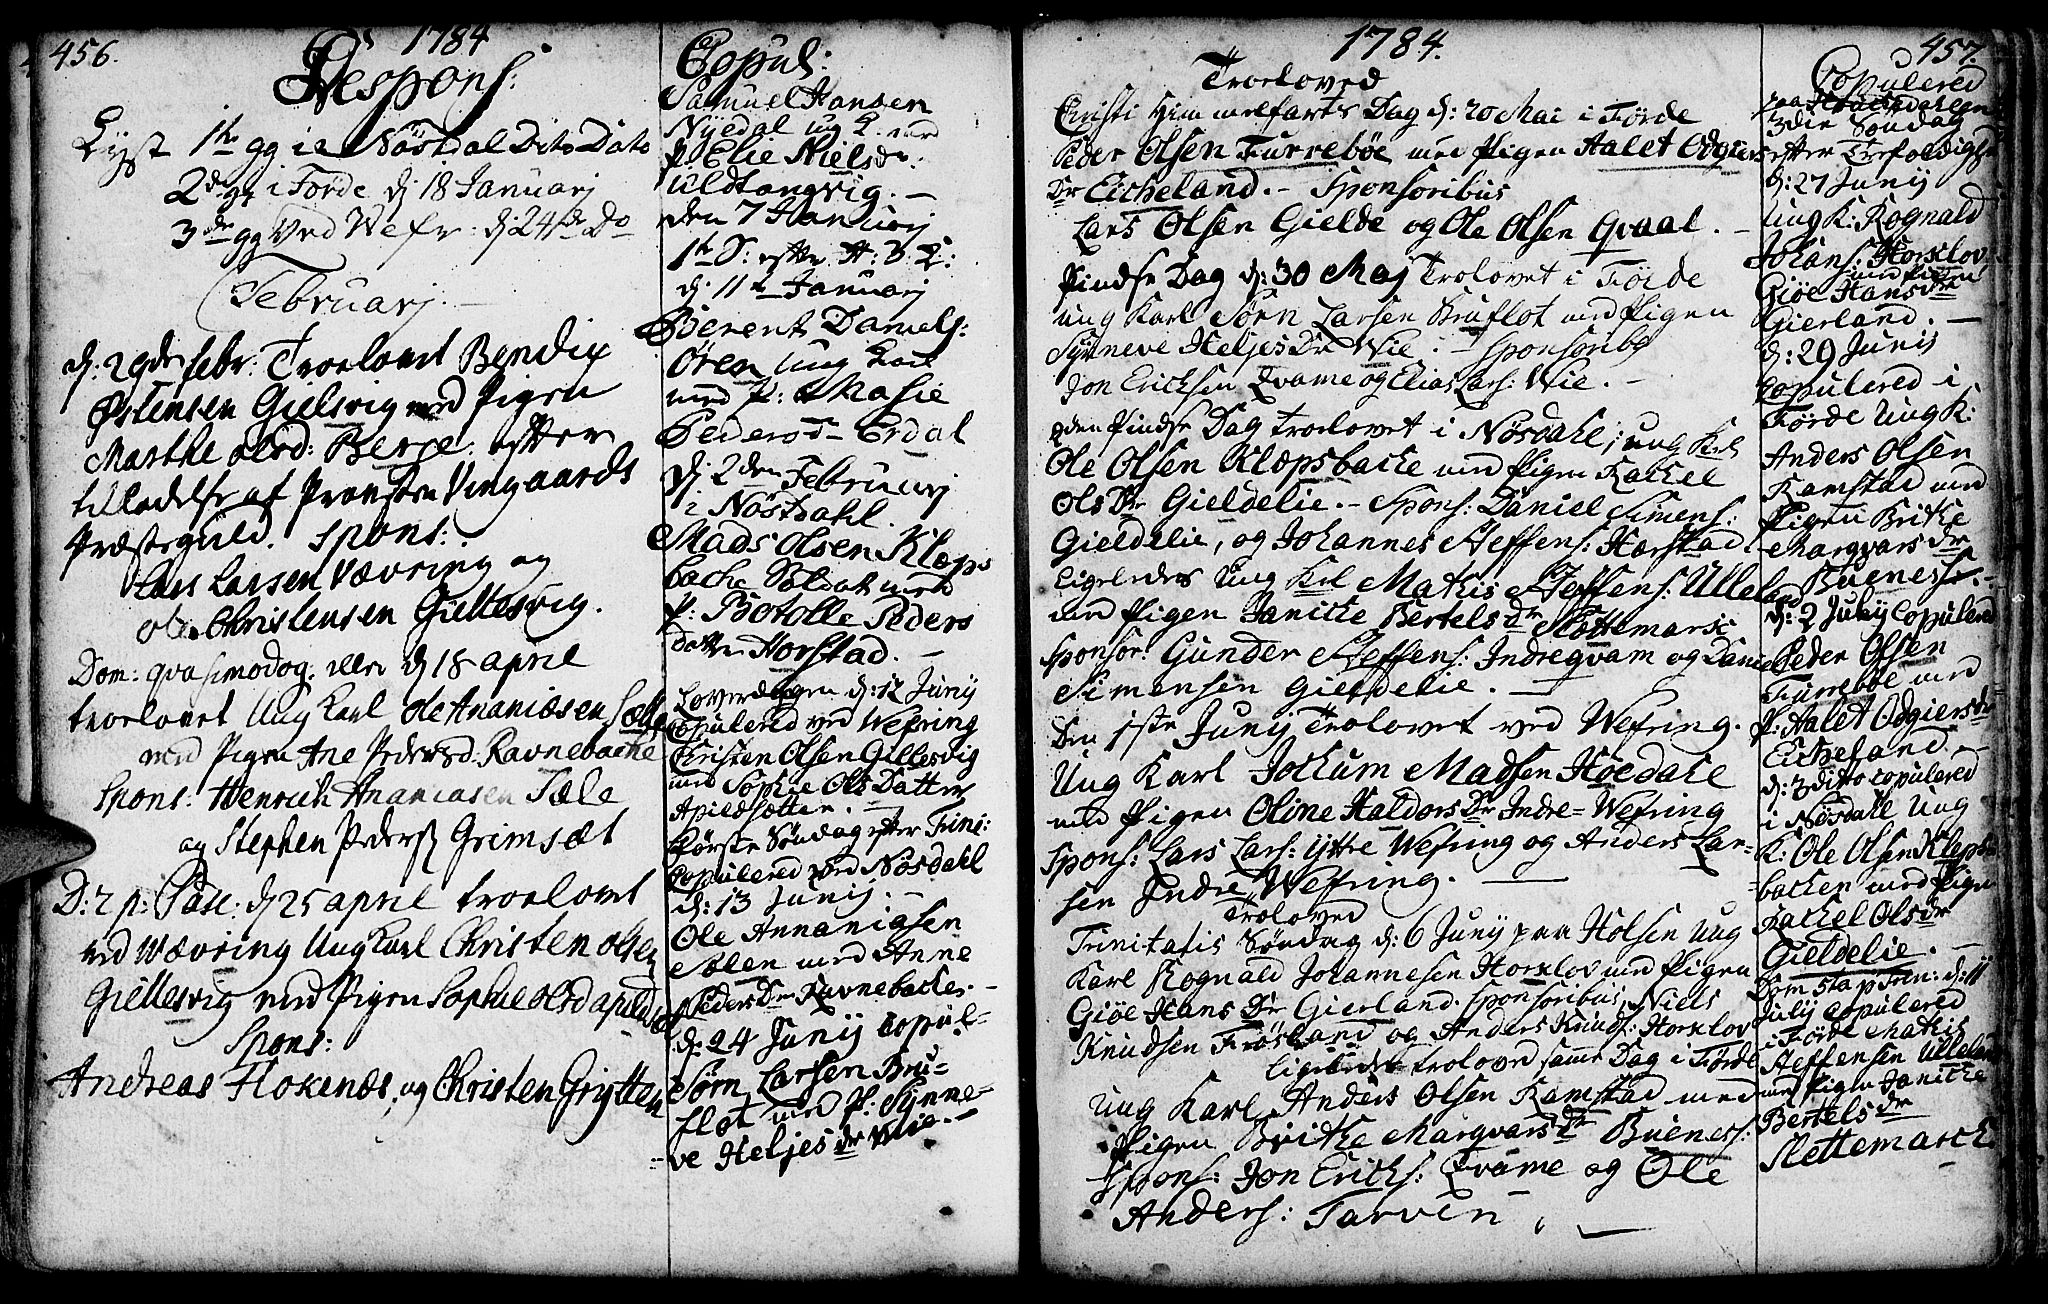 456.
1784
Despons:
Lyst 1te gg i Nösdal Dito Dato
2de gg i Förde d: 18 Januarj
3de gg Ved Wefr: d: 24de Do
Februarj. -
d: 29de febr. Troelovet Bendix
Östensen Gielsvig med Pigen
Marthe olsd: Berge. efter
tilladelse af Provsten Vingaards
Præstegield. Spons:
Lars Larsen Vævring og
ole Christensen Gillesvig.
Dom: qvasimodog. d: 18 april
troelovet Ung Karl Ole Ananiæsen Sæle
med Pigen Ane Pedersd: Ravnebacke
Spons: Henrich Ananiasen Sæle
og Stephen Peders: Grimsæt
D: 2 p: Pasc. d: 25 april troelovet
ved Wævring Ung Karl Christen olsen
Gillesvig med Pigen Sophie olsd
Spons:
Andreas Flokenæs, og Christen Grytten
Copul:
Samuel Hansen
Nyedal ug K. med
P. Elie Nielsdr.
uldtangvig. -
den 7 Januarj
1te S: efter H: 3 K:
d: 11te Januarj
Berent Daniels:
Ören ung Karl
med P: Masie
Pedersd- Erdal
d: 2den Februarj
i Nösdahl.
Mads Olsen Klæps
backe Soldat med
P: Botolle Peders
datter Horstad. -
Löverdagen d: 12 Junij
copulered ved Wefring
Christen Olsen Gillesvig
med Sophie Ols Datter
Apledsötter. -
Förste Söndag efter Trini:
copulered ved Nösdahl
d: 13 Junij. -
Ole Annaniasen
Sölen med Anne
Peders Dr Ravnebacke. -
d: 24 Junij copul-
Sörn Larsen Bru-
flot med P: Synne-
ve Heljes dr Wie. -
1784.
Troeloved
Christi Himmelfarts Dag d: 20 Mai i Förde
Peder Olsen Furreböe med Pigen Aalet Odgiers
Dr Eicheland. - Sponsoribus
Lars Olsen Gielde og Ole Olsen Qvaal. -
Pindse Dag d: 30 Maj Trolovet i Förde
ung Karl Sörn Larsen Bruflot med Pigen
Synneve Heljes Dr Wie. - Sponsorib
Jon Ericksen Qvame og Elias Lars: Wie. -
2den Pindse Dag troelovet i Nösdahl; ung Krl
Ole Olsen Klæpsbacke med Pigen Rackel
Ols Dr Gieldelie. - Spons: Daniel Simens:
Gieldelie, og Johannes Steffens: Harstad
Ligeledes Ung Krl Mathis Steffens: Ulleland
med Pigen Janicke Bertels dr Slettemarck
Sponsor: Gunder Steffens: Indreqvam og Daniel
Simensen Gieldelie. -
Den 1ste Junij Trolovet ved Wefring.
Ung Karl Jochum Madsen Höedahl
med Pigen Oline Haldors Dr Indre=Wefring
Spons: Lars Lars: ijtre Wefring og Anders Lar-
sen Indre Wefring. -
Troloved
Trinitatis Söndag d: 6 Junij paa Holsen Ung
Karl Rognald Johannesen Horklov med Pigen
Giöe Hans Dr Gierland. Sponsoribus Niels
Knudsen Frösland og Anders Knuds: Horklov
Ligeledes troloved samme Dag i Förde
Ung Karl Anders Olsen Ramstad med
Pigen Britke Margvars dr Buenes:
Spons: Jon Ericks: Qvame og Ole
Anders: Farven.
457.
Copulered
paa Holsen
3die Söndag
efter Trefoldighed
d: 27 Junij
Ung K: Rognald
Johans: Horklov
med Pigen
Giöe Hansdr
Gierland. -
d: 29 Junij
copulered i
Förde Ung K:
Anders Olsen
Ramstad med
Pigen Britke
Margvars dr
Buenes. -
d: 2 Julij copulered
Peder Olsen
Furreböe med
P: Aalet Odgiersdr
Eicheland. -
d: 3 ditto copulered
i Nösdahl Ung
K: Ole Olsen Klæps-
backen med Pigen
Rackel Olsdr
Gieldelie. -
Dom 5ta p Trin: d: 11
Julij copulered
i Förde Mathis
Steffensen Ulleland
med Pigen Janicke
Bertels dr
Slettemarck
-